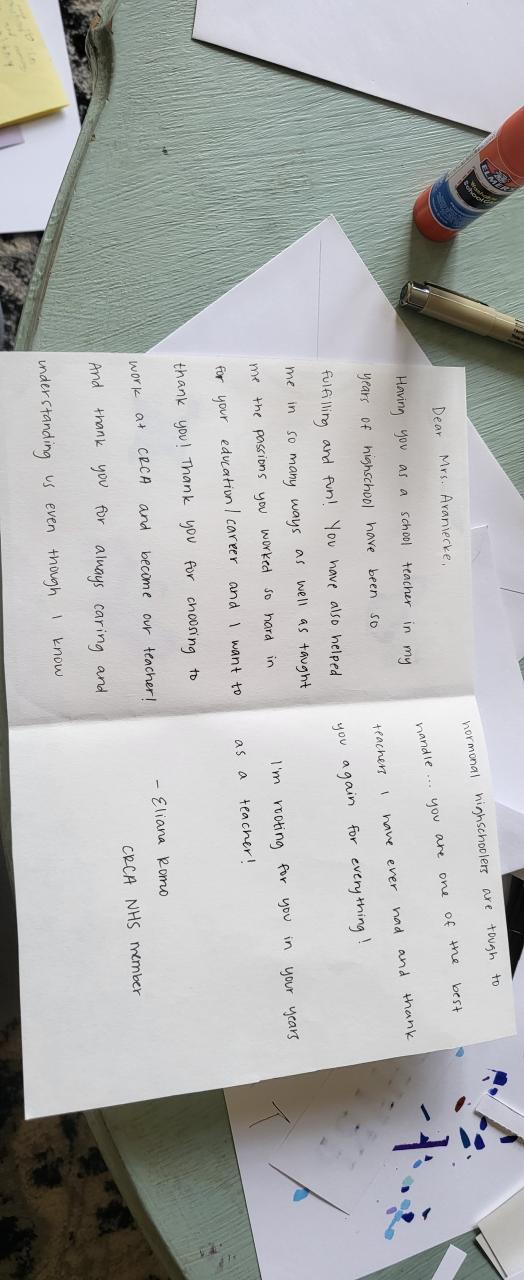 Dear Mrs. Aranlecke,
Having you as a school teacher in my
years of highschool have been so
fulfilling and fun! You have also helped
me in so many ways as well as taught
me the passions you worked so hard in
for your education/career and I want to
thank you! Thank you for choosing to
work at CRCA and become our teacher!
And thank you for always caring and
understanding us even though I know
hormonal highschoolers are tough to
handle... you are one of the best
teachers I have ever had and thank
you again for everything!
I'm rooting for you in your years
as a teacher!
- Eliana Romo
CRCA NHS member
ELMER'S
Washable
School Glue